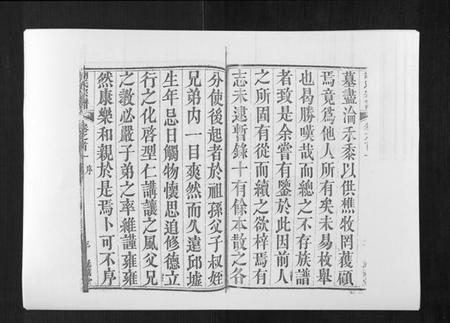 墓盡淪禾黍以供樵牧罔獲碩
焉竟爲他人所有矣未易枚舉
也曷勝嘆哉而總之不存族譜
者致是余嘗有鑒於此因前人
之所固有從而續之欲梓焉有
志未逮暫錄十有餘本散之各
分使後起者於祖孫父子叔姪
兄弟内一目爽然而久遠邱墟
生年忌日觸物懷思追修德立
行之化啓型仁講讓之風父兄
之教必嚴子弟之率維謹雍雍
然康樂和親於是焉卜可不序
卷之首 序